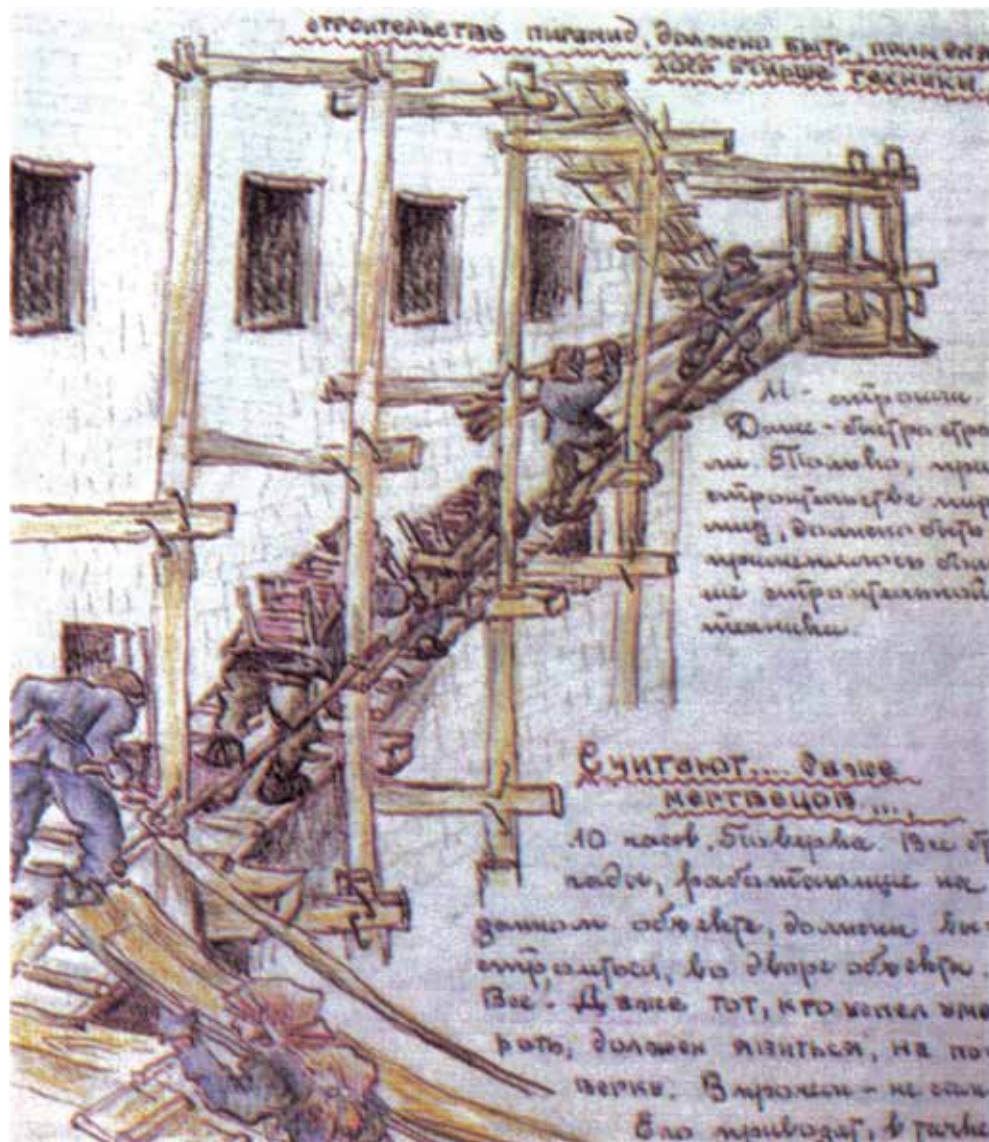 строительстве пирамид, должно быть, применя
лось больше техники.
И - строили.
Даже - быстро строи
ли. Только, при
строительстве пира
мид, должно быть
применялось боль
ше строительной
техники.
Считают.... даже
мертвецов....
10 часов. Поверка. Все от
ряды, работающие на
данном объекте, должны вы
строиться, во дворе объекта.
Все. Даже тот, кто успел уме
реть, должен явиться, на по
верку. Впрочем - не сам.
Его привозят, в тачке